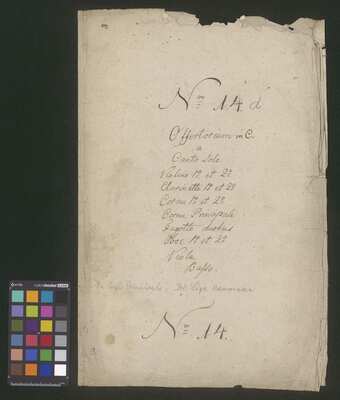 Nro 14 d
Offertorium in C.
a
Canto Solo
Violino 1º et 2º
Clarinetto 1º et 2º
Corno 1º et 2º
Corno Principale
Fagotto duobus
Oboe 1º et 2º
Viola
Basso.
Nro 14.